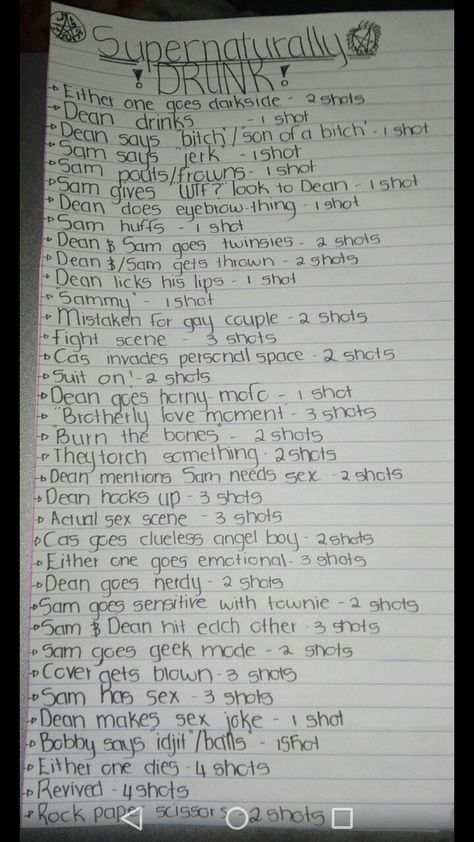 Supernaturally
! DRUNK!
Either one goes darkside - 2 shots
Dean drinks - 1 shot
Dean says "bitch"/"son of a bitch" - 1 shot
Sam says "jerk" - 1 shot
Sam pouts/frowns - 1 shot
Sam gives "WTF?" look to Dean - 1 shot
Dean does eyebrow thing - 1 shot
Sam huffs - 1 shot
Dean & Sam goes twinsies - 2 shots
Dean &/Sam gets thrown - 2 shots
Dean licks his lips - 1 shot
"Sammy" - 1 shot
Mistaken for gay couple - 2 shots
Fight scene - 3 shots
Cas invades personal space - 2 shots
Suit on! - 2 shots
Dean goes horny-mofo - 1 shot
"Brotherly love moment" - 3 shots
"Burn the bones" - 2 shots
They torch something - 2 shots
Dean mentions Sam needs sex - 2 shots
Dean hooks up - 3 shots
Actual sex scene - 3 shots
Cas goes clueless angel boy - 2 shots
Either one goes emotional - 3 shots
Dean goes nerdy - 2 shots
Sam goes sensitive with townie - 2 shots
Sam & Dean hit each other - 3 shots
Sam goes geek mode - 2 shots
Cover gets blown - 3 shots
Sam has sex - 3 shots
Dean makes sex joke - 1 shot
Bobby says "idjit"/balls" - 1 shot
Either one dies - 4 shots
Revived - 4 shots
Rock paper scissors - 2 shots